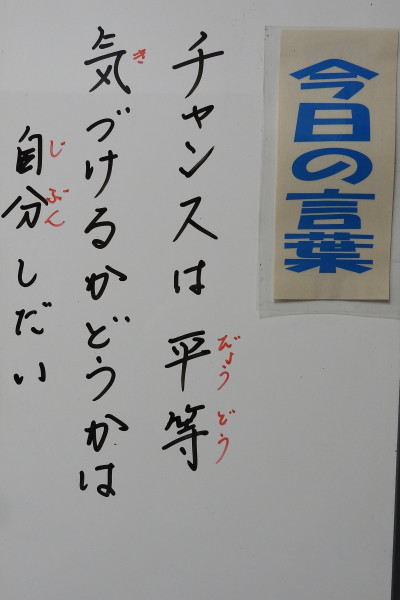 今日の言葉
チャンスは平等
びょうどう
気づけるかどうかは
き
自分しだい
じぶん